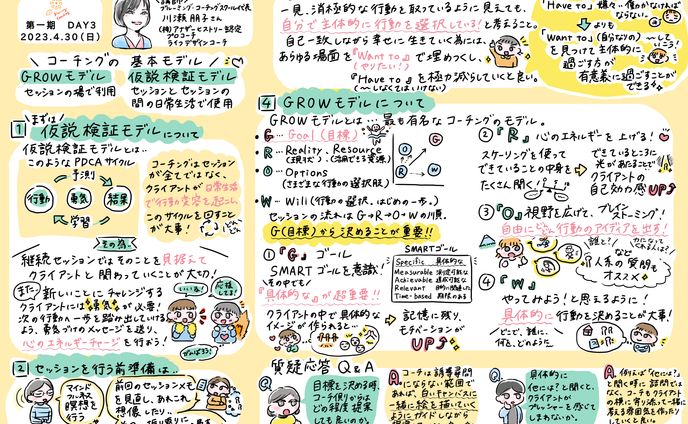 第一期 DAY3
2023.4.30(日)
ブルーミング・コーチングスクール代表
川瀬朋子さん
(株)アナザーヒストリー認定
プロコーチ
ライフデザインコーチ
コーチングの基本モデル
GROWモデル
セッションの場で利用
仮説検証モデル
セッションとセッションの
間の日常生活で使用
まずは
1 仮説検証モデルについて
仮説検証モデルとは…
このようなPDCAサイクル
予測
行動
勇気
結果
学習
コーチングはセッション
が全てではなく、
クライアントが日常生活
で行動の変容を起こし、
このサイクルを回すこと
が大事!
その為、
継続セッションではそのことを見据えて
クライアントと関わっていくことが大切!
また、新しいことにチャレンジする
クライアントには勇気が必要!
次の行動への一歩を踏み出していける
よう、勇気づけのメッセージを送り、
心のエネルギーチャージを行おう!
いいね!
応援してる!
がんばろう!
2 セッションを行う前準備は…
マインド
フルネス
瞑想を
行う
前回のセッションメモ
を見直し、あれこれ
想像したり…
一見、消極的な行動を取っているように見えても、
自分で主体的に行動を選択している!と考えること。
自己一致しながら幸せに生きていく為には、
あらゆる場面を『Want to』で埋めつくし、
(やりたい!)
『Have to』を極力減らしていくと良い。
(〜しなくてはいけない)
ならない。
よりも
『Want to』(自分なりの)
を見つけて主体的に
過ごす方が
有意義に過ごすことが
できそう
4 GROWモデルについて
GROWモデルとは…最も有名なコーチングのモデル。
G… Goal(目標)
R… Reality、Resource
(現状)、(活用できる資源)
O… Options
(さまざまな行動の選択肢)
W… Will(行動の選択、はじめの一歩。)
セッションの流れはG→R→O→Wの順。
G(目標)から決めることが重要!!
G
O
W
R
①『G』ゴール
SMARTゴールを意識!
その中でも
『具体的な』が超重要!!
SMARTゴール
Specific 具体的な
Measurable 測定可能な
Achievable 達成可能な
Relevant
Time-based 期限のある
クライアントの中で具体的な
イメージが作られると…
記憶に残り、
モチベーションが
UP
②『R』心のエネルギーを上げる!
スケーリングを使って
できていることの中身を
たくさん聞く!
できているところに
光があたることで
クライアントの
自己効力感UP
③『O』視野を広げて、ブレイン
ストーミング!
自由にどんどん行動のアイディアを出す!
誰と?
何系の質問も
オススメ
④『W』
やってみよう!と思えるように!
具体的に行動を決めることが大事!
どこで、誰に、
何を、どのように
質疑応答 Q&A
Q
目標を決める時、
コーチ側からは
どの程度提案
しても良いのか。
A
コーチは誘導尋問
にならない範囲で
あれば、白いキャンバスに
一緒に絵を描いていく
ようにガイドしながら
Q
具体的に
他には?と聞くと、
クライアントが
プレッシャーを感じて
しまわないか。
A
例えば「他には?」
と聞く時に詰問では
なく、コーチもクライアント
の横に寄り添って一緒に
考える雰囲気を作ったり
していくと良い。